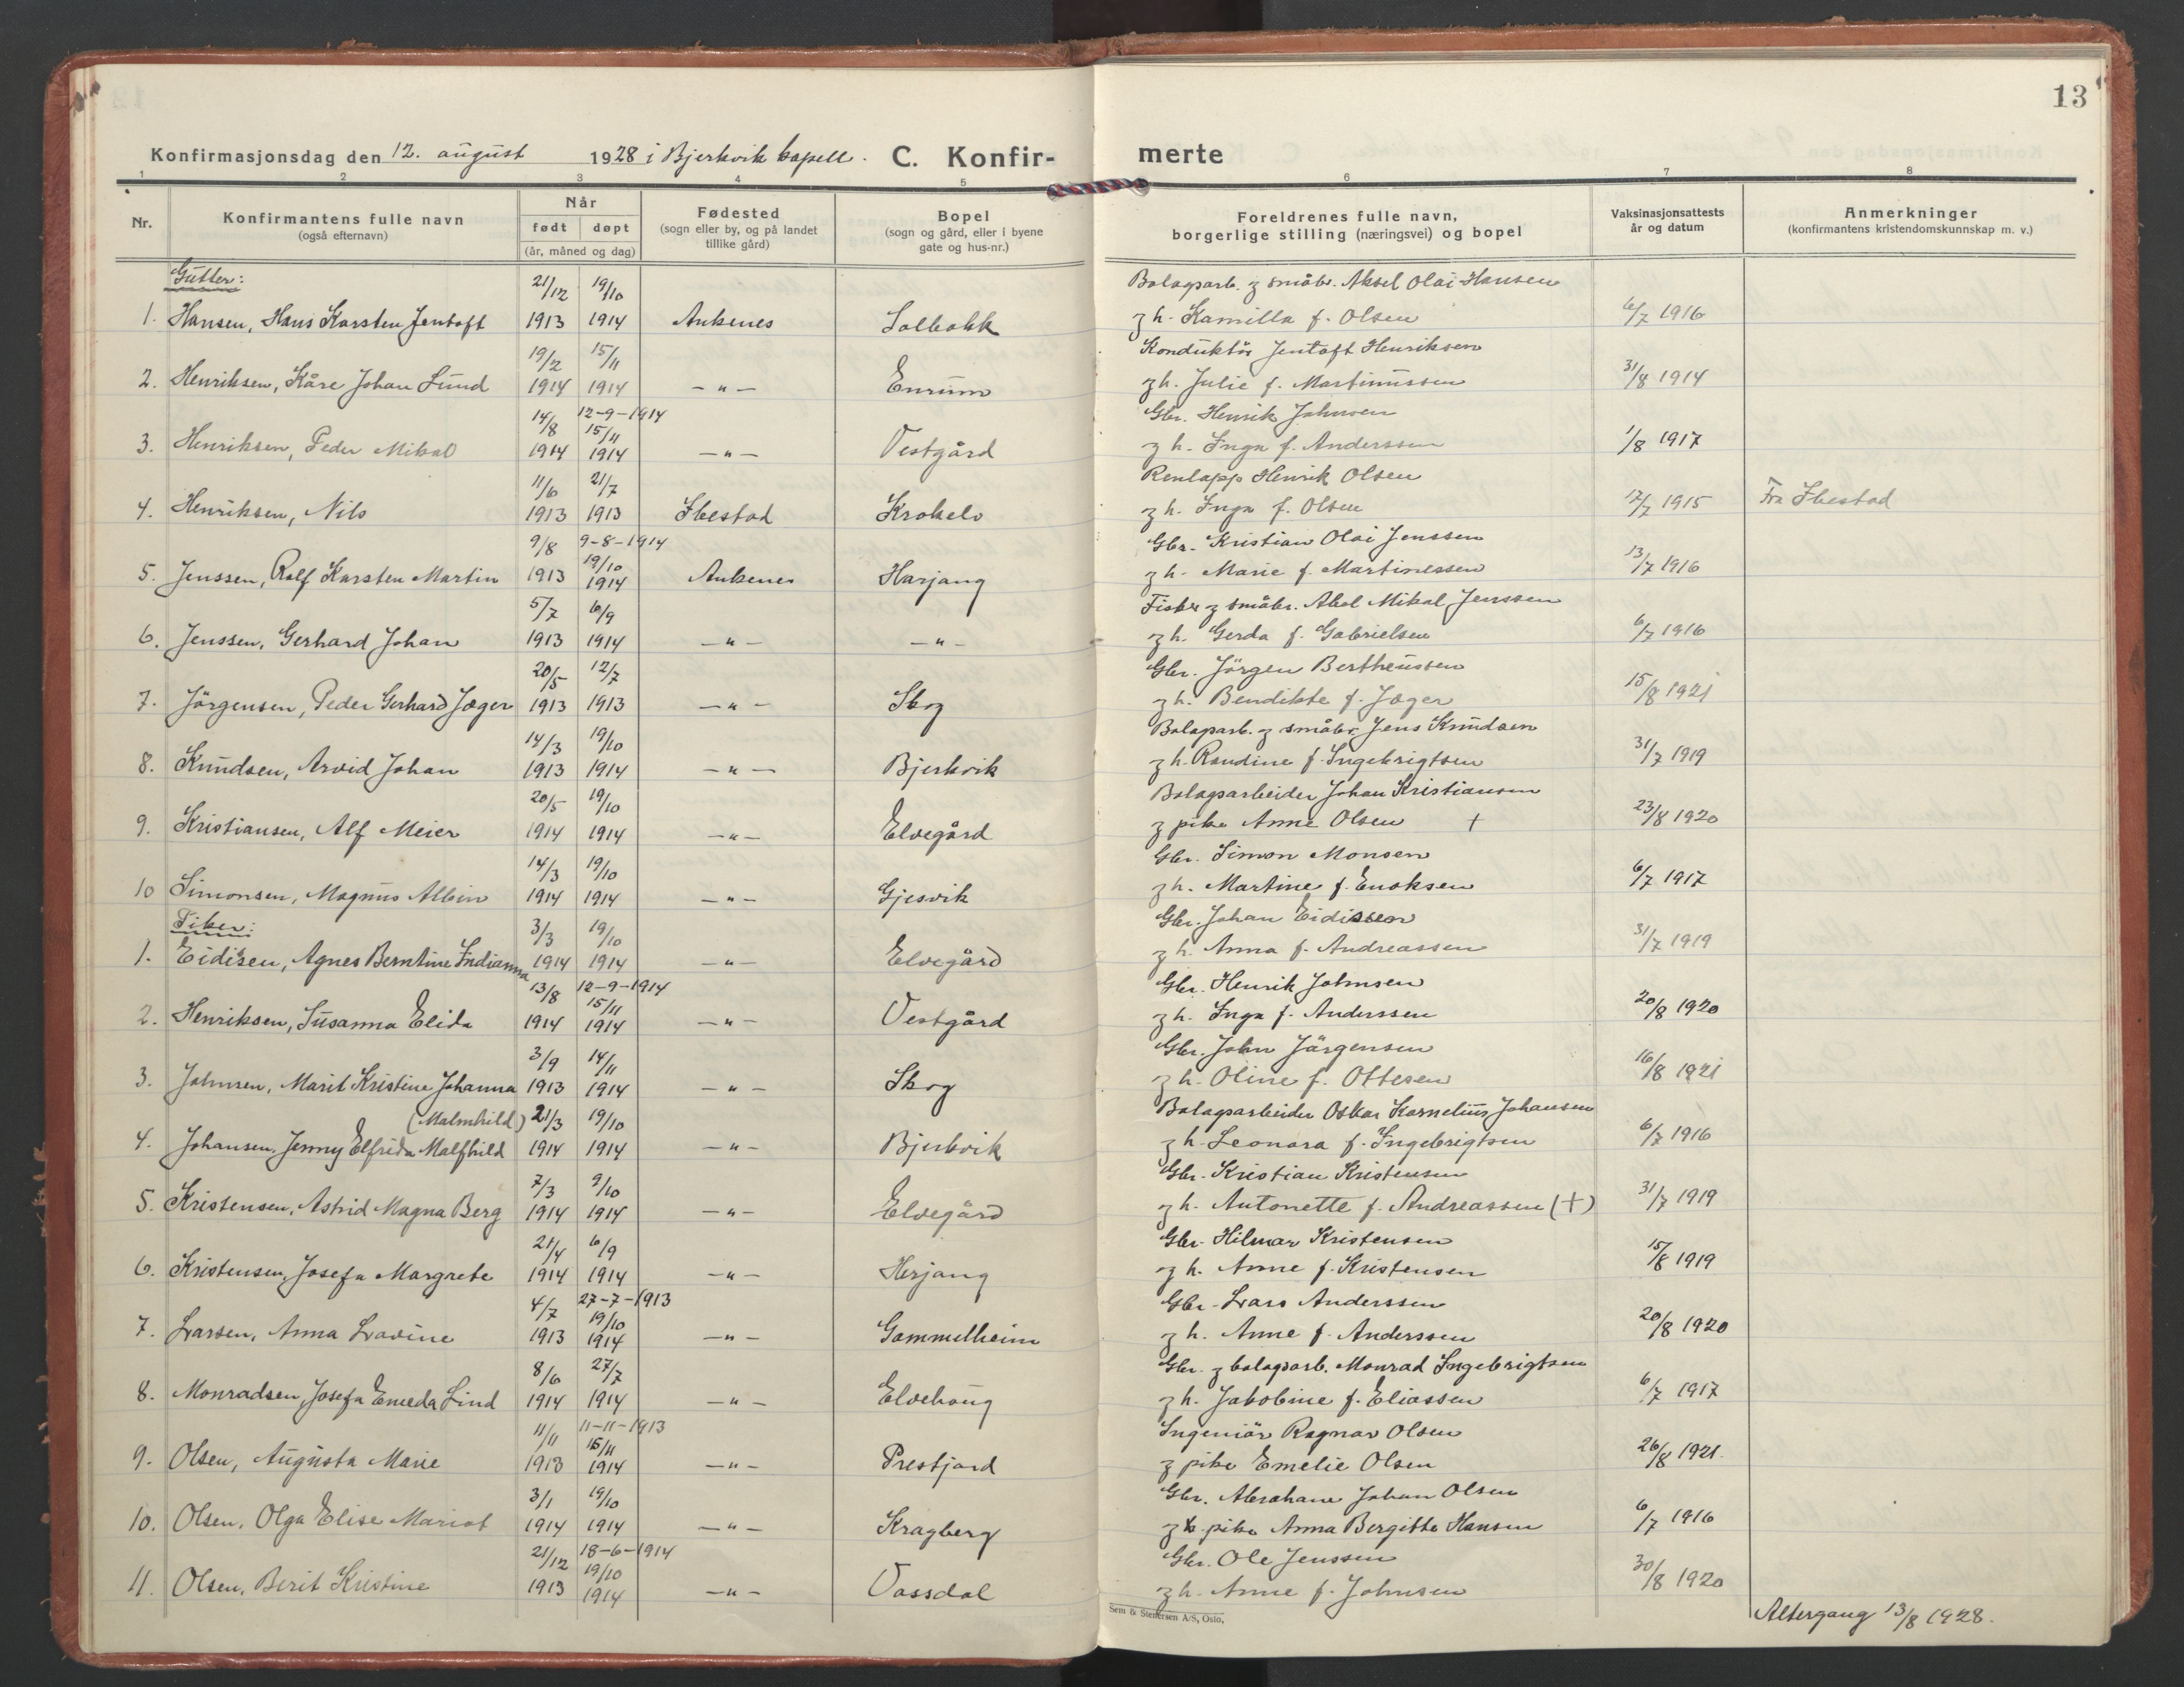 13
Konfirmasjonsdag den 12. august 1928 i Bjerkvik kapell. C. Konfir-merte
1 2 3 4 5 6 7 8
Nr. Konfirmantens fulle navn (også efternavn) Når født døpt (år, måned og dag) Fødested (sogn eller by, og på landet tillike gård) Bopel (sogn og gård, eller i byene gate og hus-nr.) Foreldrenes fulle navn, borgerlige stilling (næringsvei) og bopel Vaksinasjonsattests år og datum Anmerkninger (konfirmantens kristendomskunnskap m. v.)
Gutter:
21/12 19/10 Bolagsarb. og småbr. Aksel Olai Hansen
1. Hansen, Hans Karsten Jentoft 1913 1914 Ankenes Solbakk og h. Kamilla f. Olsen 6/7 1916
19/2 15/11 Konduktör Jentoft Henriksen
2. Henriksen, Kåre Johan Lund 1914 1914 -"- Enrum og h. Julie f. Martinussen 31/8 1914
14/8 12-9-1914 15/11 Gbr. Henrik Johnsen
3. Henriksen, Peder Mikal 1914 1914 -"- Vestgård og h. Inga f. Anderssen 1/8 1917
11/6 21/7 Renlapp Henrik Olsen
4. Henriksen, Nils 1913 1913 Ibestad Krokelv og h. Inga f. Olsen 17/7 1915 Fra Ibestad
9/8 9-8-1914 19/10 Gbr. Kristian Olai Jenssen
5. Jenssen, Rolf Karsten Martin 1913 1914 Ankenes Harjang og h. Marie f. Martinessen 13/7 1916
5/7 6/9 Fisker og småbr. Abel Mikal Jenssen
6. Jenssen, Gerhard Johan 1913 1914 -"- -"- og h. Gerda f. Gabrielsen 6/7 1916
20/5 12/7 Gbr. Jörgen Bertheussen
7. Jörgensen, Peder Gerhard Jæger 1913 1913 -"- Skog og h. Bendikte f. Jæger 15/8 1921
14/3 19/10 Bolagsarb. og småbr. Jens Knudsen
8. Knudsen, Arvid Johan 1913 1914 -"- Bjerkvik og h. Randine f. Ingebrigtsen 31/7 1919
20/5 19/10 Bolagsarbeider Johan Kristiansen
9. Kristiansen, Alf Meier 1914 1914 -"- Elvegård og pike Anne Olsen + 23/8 1920
14/3 19/10 Gbr. Simon Monsen
10 Simonsen, Magnus Albin 1914 1914 -"- Gjesvik og h. Martine f. Enoksen 6/7 1917
Piker:
3/3 19/10 Gbr. Johan Eidissen
1. Eidisen, Agnes Berntine Indianna 1914 1914 -"- Elvegård og h. Anna f. Andreassen 31/7 1919
13/8 12-9-1914 15/11 Gbr. Henrik Johnsen
2. Henriksen, Susanna Elida 1914 1914 -"- Vestgård og h. Inga f. Anderssen 20/8 1920
3/9 14/11 Gbr. John Jörgensen
3. Johnsen, Marit Kristine Johanna 1913 1914 -"- Skog og h. Oline f. Ottesen 16/8 1921
(Malmhild) 21/3 19/10 Bolagsarbeider Oskar Kornelius Johansen
4. Johansen, Jenny Elfrida Malfhild 1914 1914 -"- Bjerkvik og h. Leonora f. Ingebrigtsen 6/7 1916
7/3 9/10 Gbr. Kristian Kristensen
5. Kristensen, Astrid Magna Berg 1914 1914 -"- Elvegård og h. Antonette f. Andreassen (+) 31/7 1919
21/4 6/9 Gbr. Hilmar Kristensen
6. Kristensen, Josefa Margrete 1914 1914 -"- Herjang og h. Anne f. Kristensen 15/8 1919
4/7 27-7-1913 19/10 Gbr. Lars Anderssen
7. Larsen, Anna Lavine 1913 1914 -"- Gammelheim og h. Anne f. Anderssen 20/8 1920
8/6 27/7 Gbr. og bolagsarb. Monrad Ingebrigtsen
8. Monradsen, Josefa Emeda Lind 1914 1914 -"- Elvehoug og h. Jakobine f. Eliassen 6/7 1917
11/11 11-11-1913 15/11 Ingeniör Ragnar Olsen
9. Olsen, Augusta Marie 1913 1914 -"- Prestjord og pike Emelie Olsen 26/8 1921.
3/1 19/10 Gbr. Abraham Johan Olsen
10. Olsen, Olga Elise Mariot 1914 1914 -"- Kragberg og pike Anna Bergitte Hansen 6/7 1916
21/12 18-6-1914 19/10 Gbr. Ole Jenssen
11. Olsen, Berit Kristine 1913 1914 -"- Vassdal og h. Anne f. Johnsen 30/8 1920
Sem & Stenersen A/S, Oslo.
Altergang 13/8 1928.